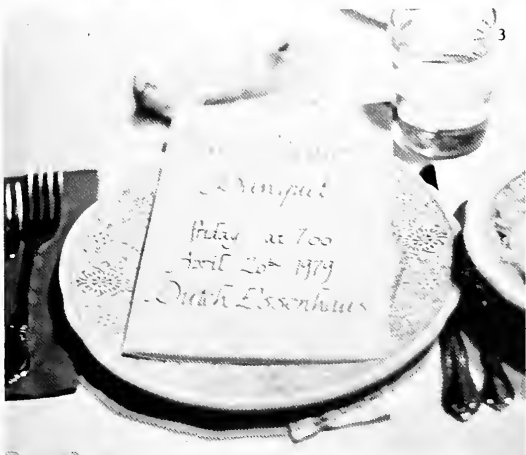 3
Banquet
friday at 7:00
April 20th 1979
Dutch Essenhaus